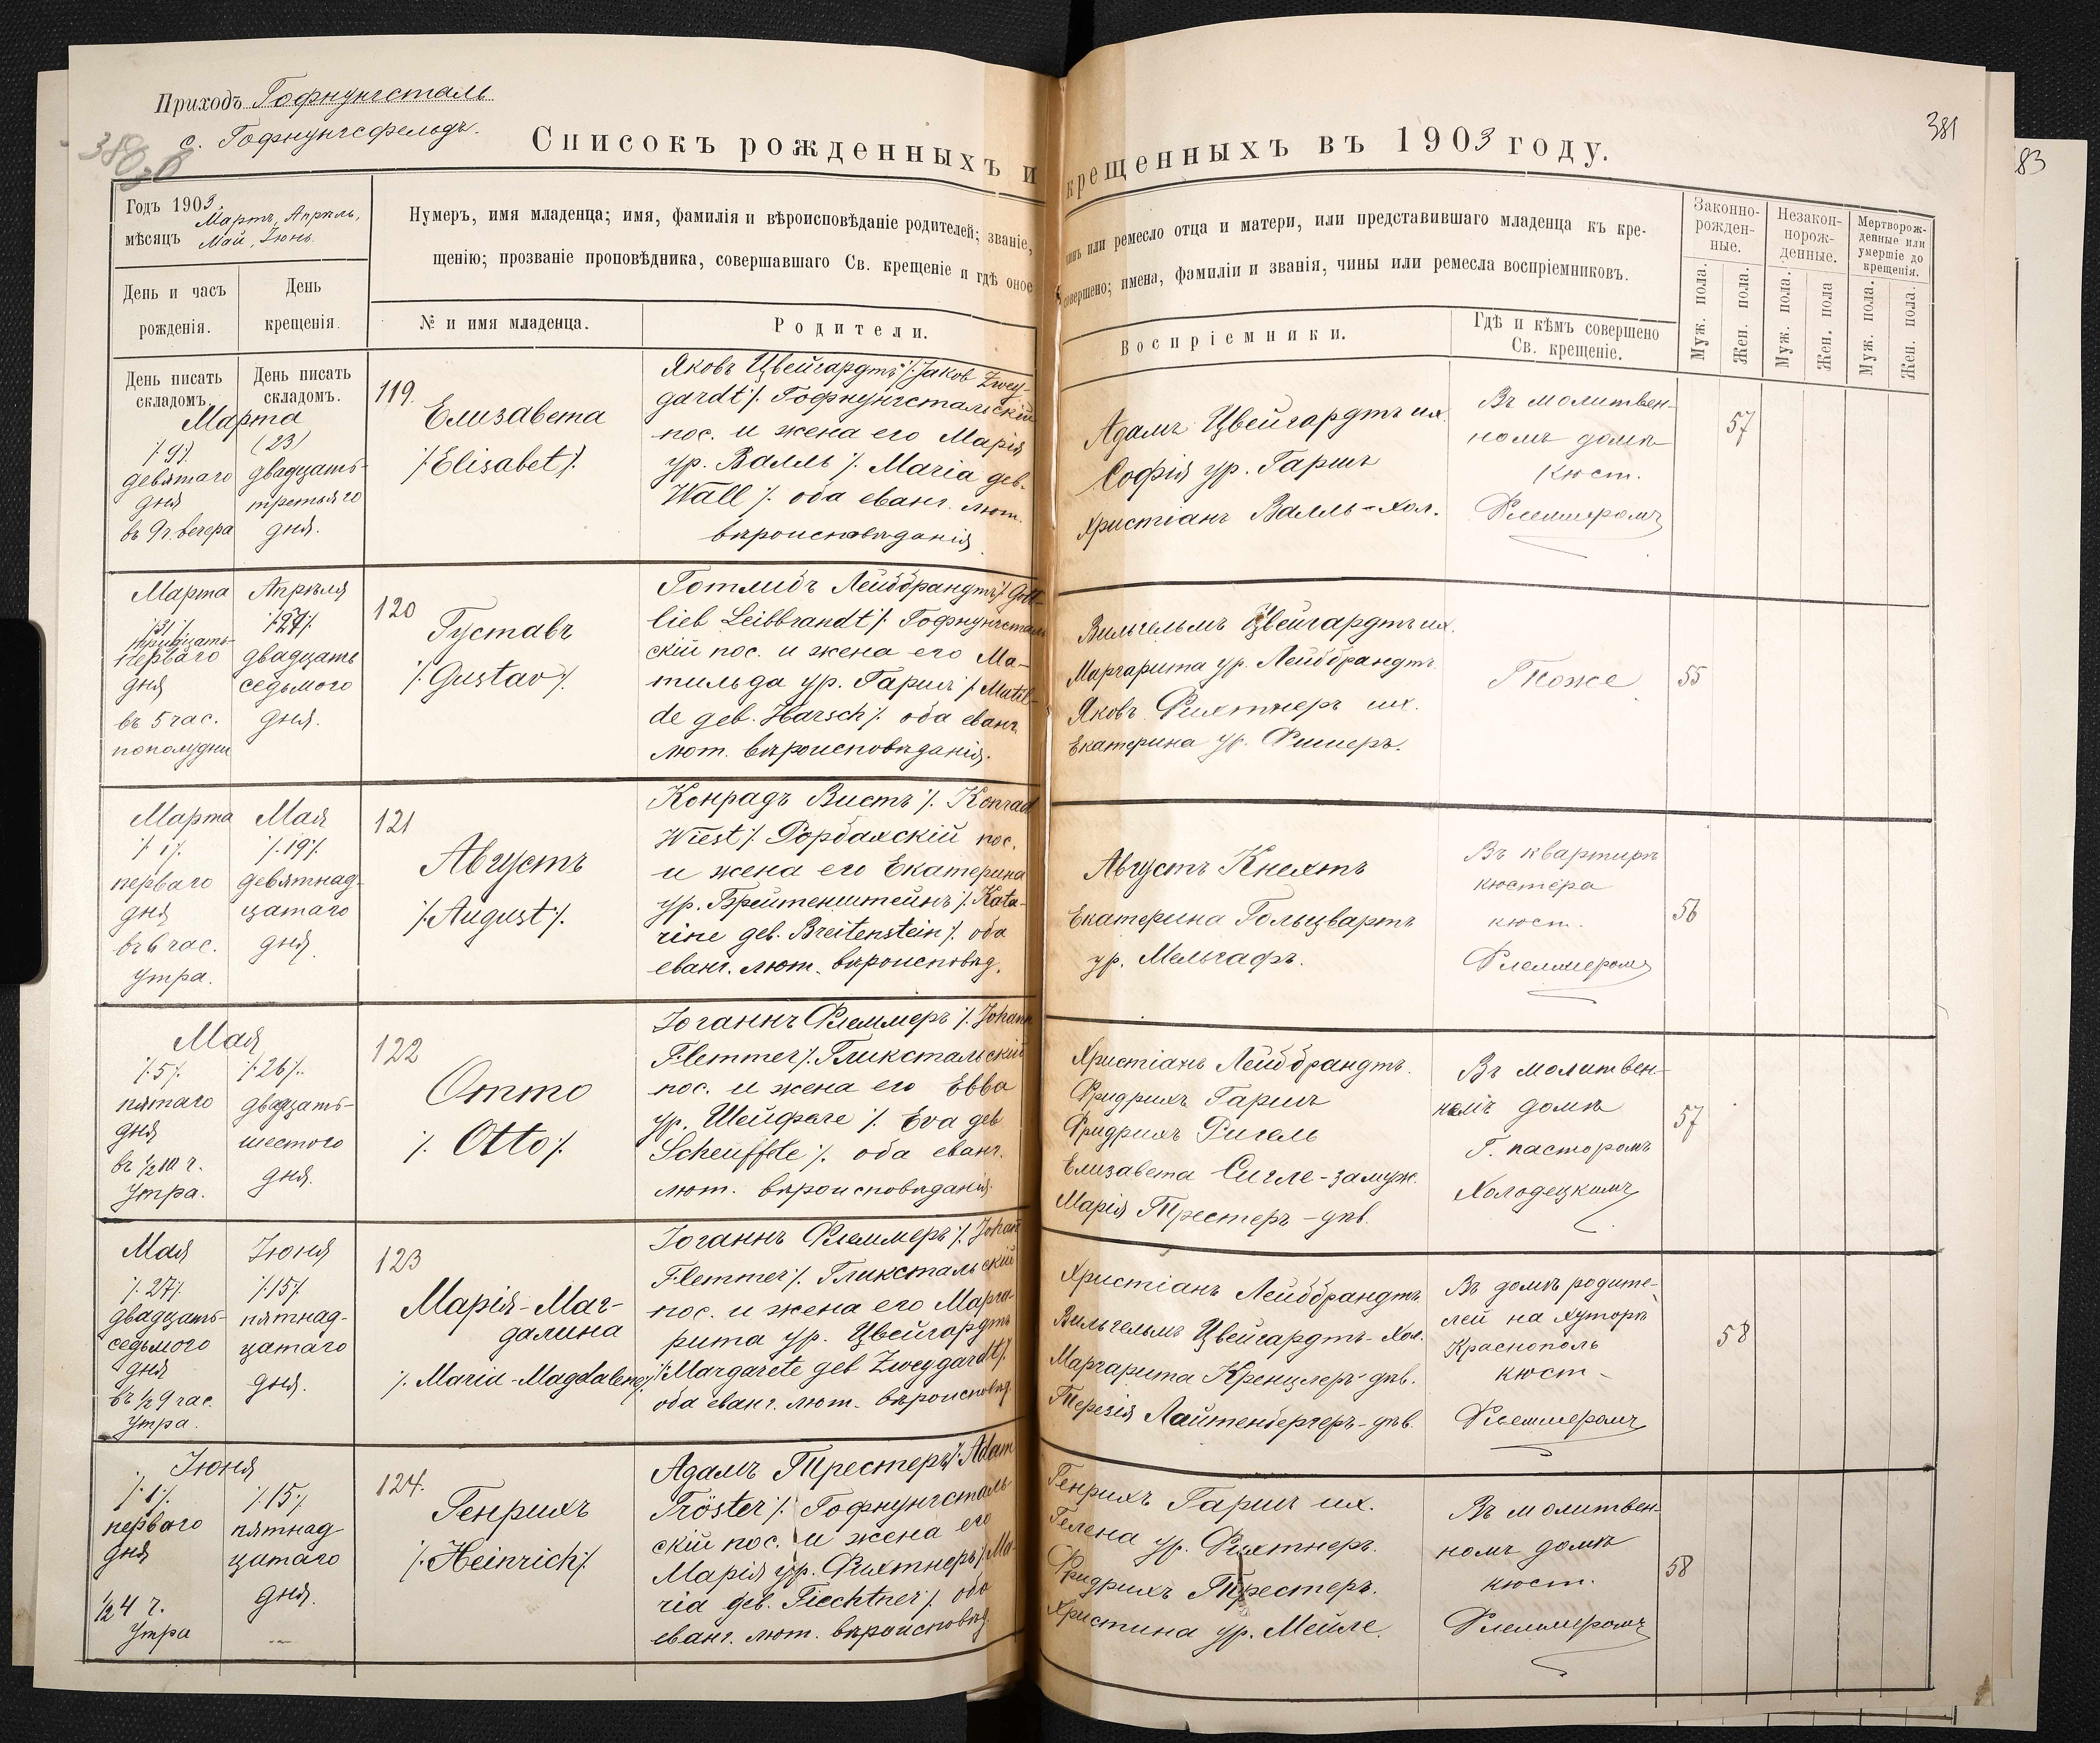 Приходъ Гофнунгсталь
с. Гофнунгсфельдъ.
Списокъ рожденныхъ и крещенныхъ въ 1903 году.
381
83
Годъ 1903.
Мартъ, Апрѣль,
мѣсяцъ Май, Іюнь
Нумеръ, имя младенца; имя, фамилія и вѣроисповѣданіе родителей; званіе, чинъ или ремесло отца и матери, или представившаго младенца къ кре-
щенію; прозваніе проповѣдника, совершавшаго Св. крещеніе и гдѣ оное совершено; имена, фамиліи и званія, чины или ремесла воспріемниковъ.
Законно-
рожден-
ные.
Незакон-
норож-
денные.
Мертворож-
денные или
умершіе до
крещенія.
День и часъ
рожденія.
День
крещенія.
№ и имя младенца.
Родители.
Воспріемники.
Гдѣ и кѣмъ совершено
Св. крещеніе.
Муж. пола.
Жен. пола.
Муж. пола.
Жен. пола
Муж. пола.
Жен. пола.
День писать
складомъ.
День писать
складомъ.
Марта
/:9:/
девятаго
дня
въ 9 ч. вечера
(23)
двадцать-
третьяго
дня.
119.
Елизавета
/:Elisabet:/
Яковъ Цвейгардтъ /:Jakob Zwey-
gardt:/ Гофнунгстальскій
пос. и жена его Марія
ур. Валль /: Maria geb.
Wall :/ оба еванг. лют.
вѣроисповѣданія
Адамъ Цвейгардтъ их.
Софія ур. Гаршъ
Христіанъ Валль-хол.
Въ молитвен-
номъ домѣ
кюст.
Флеммеромъ
57
Марта
/:31:/
тридцать-
перваго
дня
въ 5 час.
пополудни
Апрѣля
/:27:/
двадцать
седьмого
дня.
120
Густавъ
/:Gustav:/
Готлибъ Лейббрандтъ /:Gott-
lieb Leibbrandt:/ Гофнунгсталь
скій пос. и жена его Ма-
тильда ур. Гаршъ /:Matil-
de geb. Harsch:/ оба еванг.
лют. вѣроисповѣданія.
Вильгельмъ Цвейгардтъ их.
Маргарита ур. Лейббрандтъ
Яковъ Фихтнеръ их.
Екатерина ур. Фишеръ.
Тоже
55
Марта
/:1:/
перваго
дня
въ 6 час.
утра.
Мая
/:19:/
девятнад-
цатаго
дня.
121
Августъ
/:August:/
Конрадъ Вистъ /: Konrad
Wiest:/ Рорбахскій пос.
и жена его Екатерина
ур. Брейтенштейнъ /:Kata-
rine geb. Breitenstein:/ оба
еванг. лют. вѣроисповѣд.
Августъ Кнехтъ
Екатерина Гольцвартъ
ур. Мельгафъ.
Въ квартирѣ
кюстера
кюст.
Флеммеромъ
56
Мая
/:5:/
пятаго
дня
въ ½10 ч.
утра.
/:26:/
двадцать-
шестого
дня.
122
Отто
/: Otto:/
Іоганнъ Флеммеръ /: Johann
Flemmer:/ Гликстальскій
пос. и жена его Евва
ур. Шейфеле /: Eva geb
Scheuffele:/ оба еванг.
лют. вѣроисповѣданія.
Христіанъ Лейббрандтъ.
Фридрихъ Гаршъ
Фридрихъ Ригель
Елизавета Сигле-замуж.
Марія Трестеръ-дѣв.
Въ молитвен-
номъ домѣ
Г. пасторомъ
Холодецкимъ
57
Мая
/:27:/
двадцать-
седьмого
дня
въ ½9 час.
утра.
Іюня
/:15:/
пятнад-
цатаго
дня.
123
Марія-Маг-
далина
/: Maria-Magdalena:/
Іоганнъ Флеммеръ /: Johan
Flemmer:/ Гликстальскій
пос. и жена его Марга-
рита ур. Цвейгардтъ
/:Margarete geb Zweygardt:/
оба еванг. лют. вѣроисповѣд.
Христіанъ Лейббрандтъ.
Вильгельмъ Цвейгардтъ-хол.
Маргарита Кренцлеръ-дѣв.
Терезія Лайтенбергеръ-дѣв.
Въ домѣ родите-
лей на хуторѣ
Краснополь
кюст-
Флеммеромъ
58
Іюня
/:1:/
перваго
дня
½4 ч.
утра
/:15:/
пятнад
цатаго
дня.
124.
Генрихъ
/:Heinrich:/
Адамъ Трестеръ /:Adam
Tröster:/ Гофнунгсталь
скій пос. и жена его
Марія ур. Фихтнеръ /:Ma-
ria geb. Fiechtner:/ оба
еванг. лют. вѣроисповѣд.
Генрихъ Гаршъ их.
Гелена ур. Фихтнеръ.
Фридрихъ Трестеръ.
Христина ур. Мейле.
Въ молитвен-
номъ домѣ
кюст.
Флеммеромъ
58